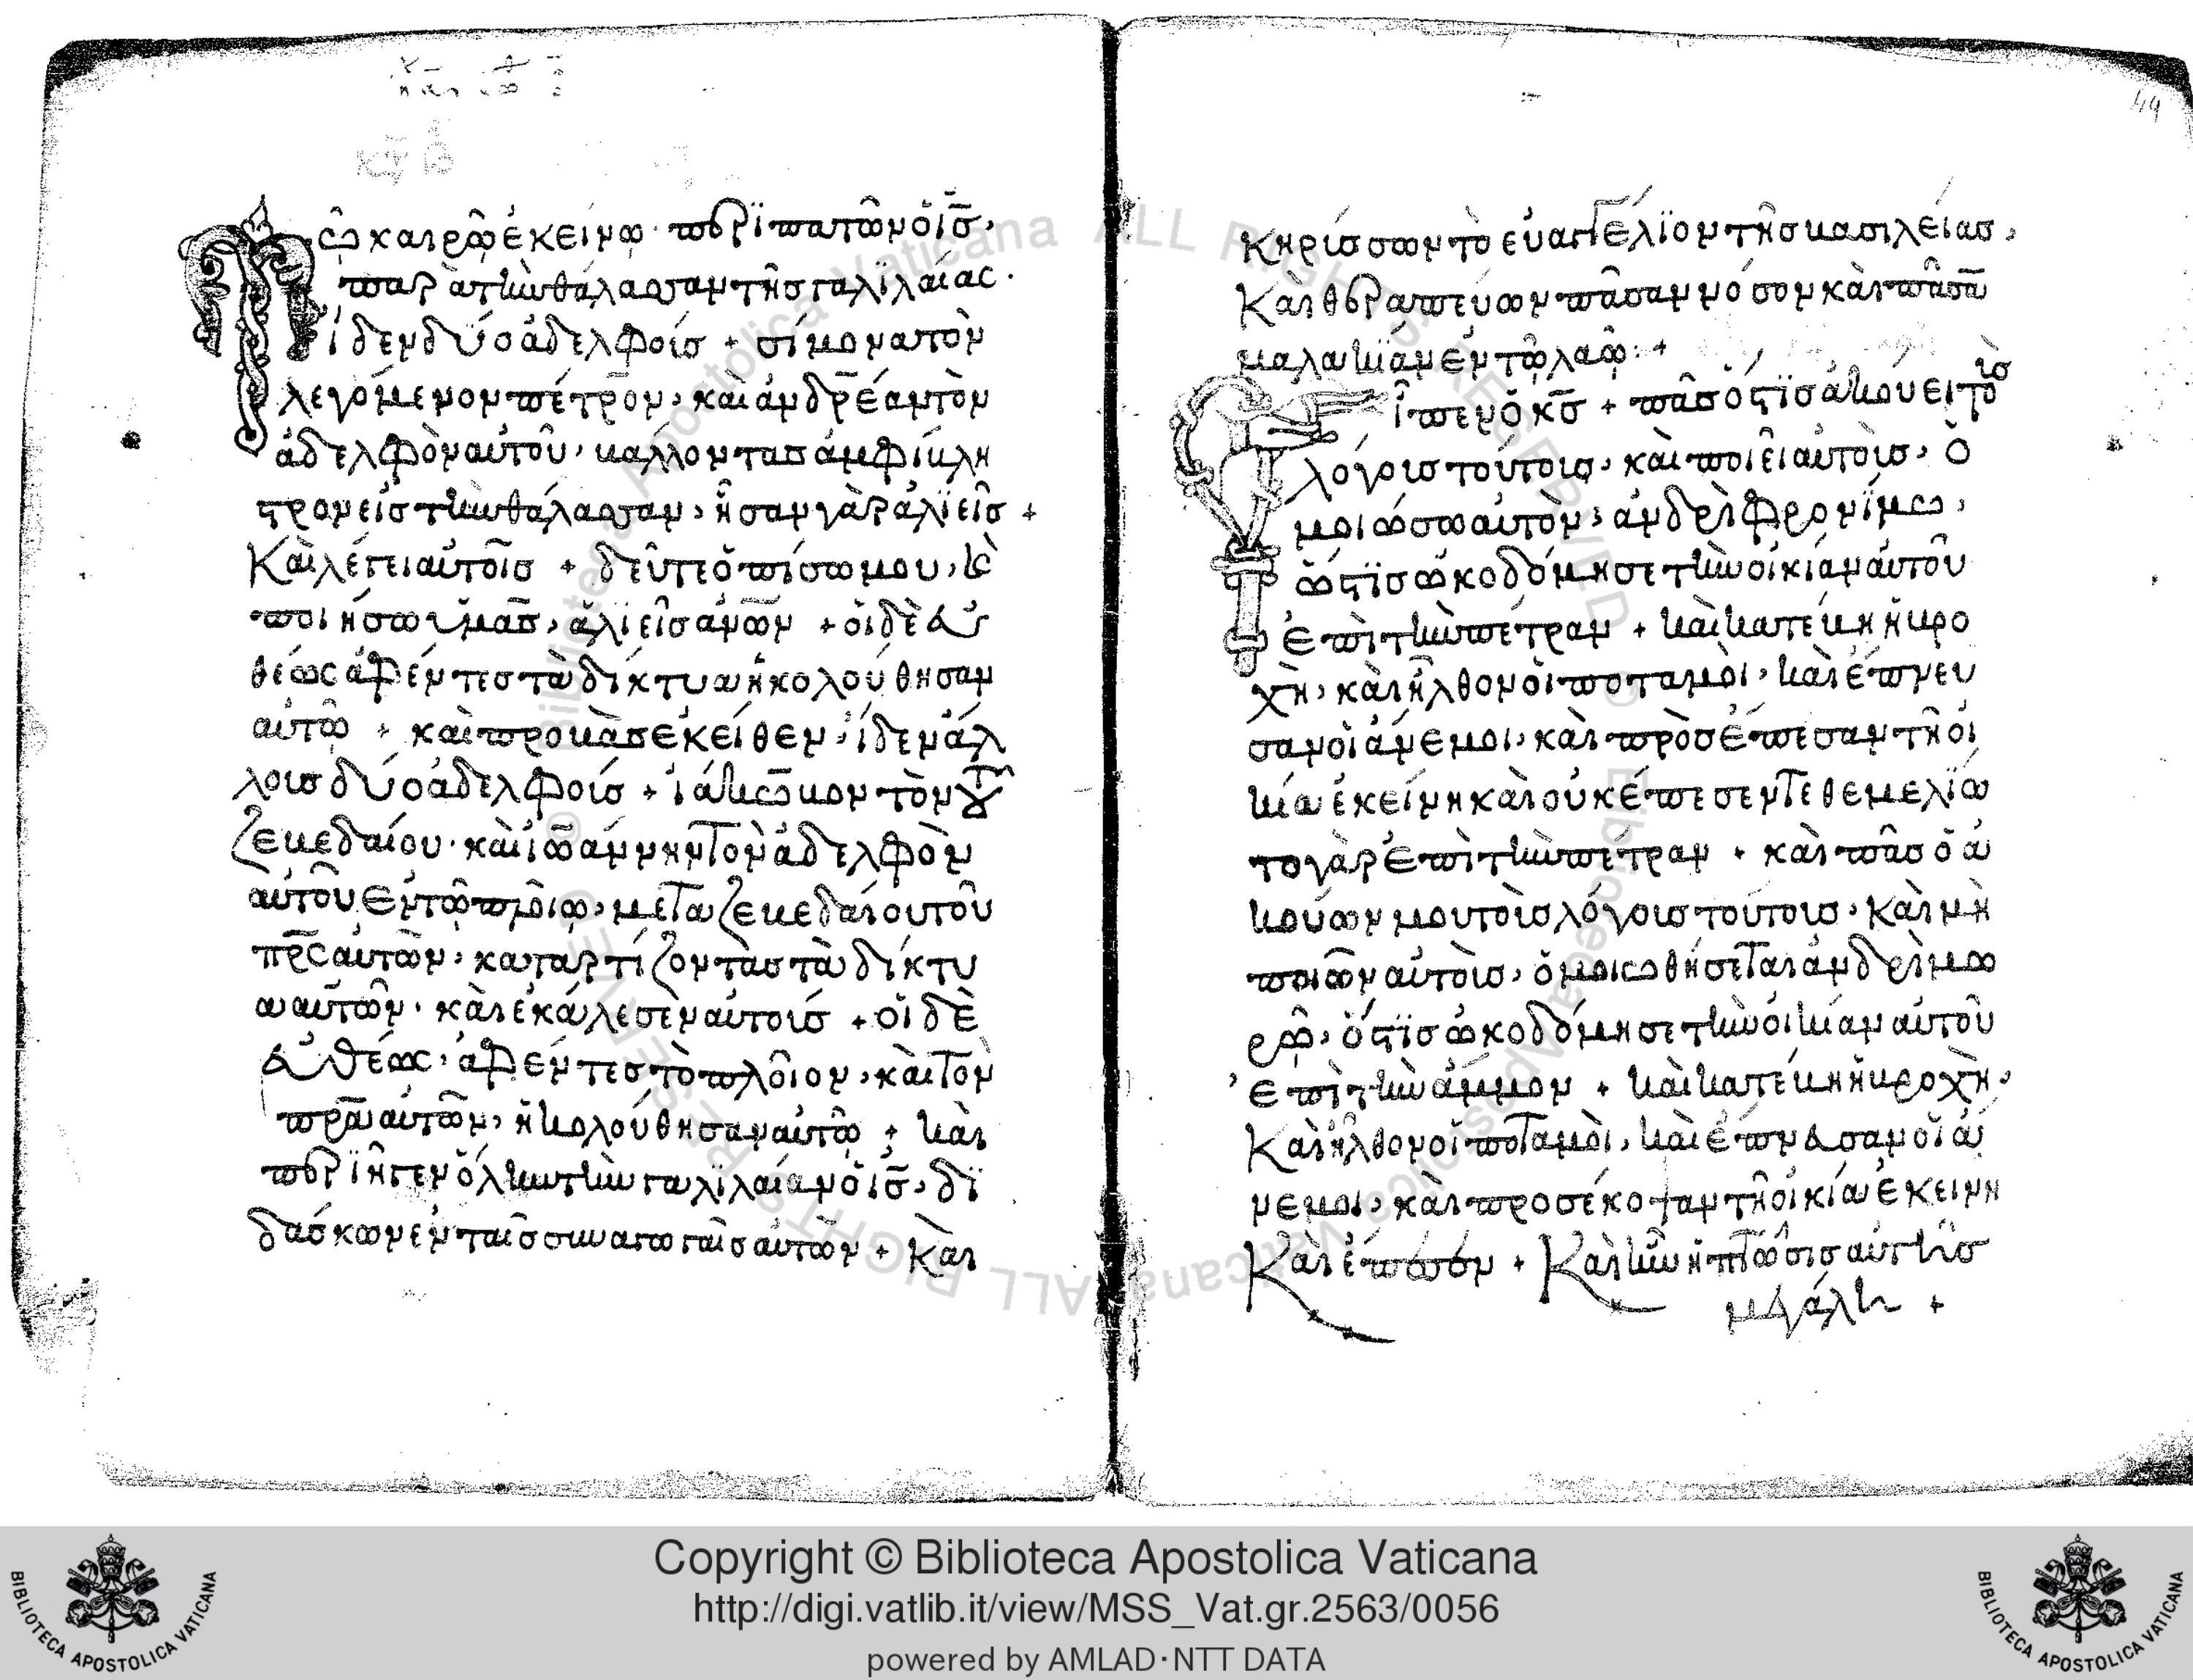 Τῶ καιρῶ ἐκείνω· περϊπατῶν ὁ ἰς̅,
παρὰ τὴν θάλασσαν τῆς γαλϊλαίας·
ἴδεν δύο ἀδελφοὶς + σίμονα τὸν
λεγόμενον πέτρον, καὶ ἀνδρέαν τὸν
ἀδελφὸν αὐτοῦ, βάλλοντας ἀμφίβλη
στρον εἰς τὴν θάλασσαν, ἦσαν γὰρ ἁλϊεῖς +
Καὶ λέγει αὐτοῖς + δεῦτε ὀπίσω μου, κὲ
ποιήσω ὑμᾶς, ἁλιεῖς ἀνῶν + οἱ δὲ εὐ
θέως ἀφέντες τὰ δίκτυα ἠκολούθησαν
αὐτῶ + καὶ προβὰς ἐκεῖθεν, ἴδεν ἄλ
λοις δύο ἀδελφοὶς + ἰάκωβον τὸν τοῦ
ζεβεδαίου· καὶ ἰωάννην τὸν ἀδελφὸν
αὐτοῦ ἐν τῶ πλοίω, μετὰ ζεβεδαίου τοῦ
πρ̅ς αὐτῶν, καταρτίζοντας τὰ δίκτυ
α αὐτῶν· καὶ ἐκάλεσεν αὐτοὶς + οἱ δὲ
εὐθέως· ἀφέντες τὸ πλοῖον, καὶ τὸν
πρ̅α αὐτῶν, ἠκολούθησαν αὐτῶ + καὶ
περϊῆγεν ὅλην τὴν γαλϊλαίαν ὁ ἰς̅, δϊ
δάσκων ἐν ταῖς συναγωγαῖς αὐτῶν + Καὶ
44
κηρίσσων τὸ εὐαγγέλϊον τῆς βασιλείας,
Καὶ θεραπεύων πᾶσαν νόσον καὶ πᾶσα̅
μαλακϊαν ἐν τῶ λαῶ: +
Εἶπεν ὁ κς̅ + πᾶς ὅστϊς ἀκούει τοὶς
λόγοις τούτοις, καὶ ποιεῖ αὐτοὶς, ὁ
μοιώσω αὐτὸν, ἀνδρὶ φρονϊμω,
ὥστϊς ὠκοδόμησε τὴν οἰκίαν αὐτοῦ
ἐπὶ τὴν πέτραν + καὶ κατέβη ἡ βρο
χὴ, καὶ ἦλθον οἱ ποταμοὶ, καὶ ἔπνευ
σαν οἱ ἄνεμοι, καὶ πρὸσέπεσαν τῆ οἰ
κία ἐκείνη καὶ οὐκ ἔπεσεν τεθεμελϊω
το γὰρ ἐπὶ τὴν πέτραν + καὶ πᾶς ὁ ἀ
κούων μου τοὶς λόγοις τούτοις, καὶ μὴ
ποιῶν αὐτοὶς, ὁμοιωθήσεται ἀνδρὶ μω
ρῶ, ὅστϊς ὠκοδόμησε τὴν οἰκίαν αὐτοῦ
ἐπὶ τὴν ἄμμον + καὶ κατέβη ἡ βροχὴ,
Καὶ ἦλθον οἱ ποταμοὶ, καὶ ἔπνευσαν οἱ ἄ
νεμοι, καὶ προσέκοψαν τῆ οἰκία ἐκείνη
Καὶ ἔπεσεν + Καὶ ἦν ἡ πτῶσις αὐτῆς
μεγάλη +
Copyright © Biblioteca Apostolica Vaticana
http://digi.vatlib.it/view/MSS_Vat.gr.2563/0056
powered by AMLAD·NTT DATA